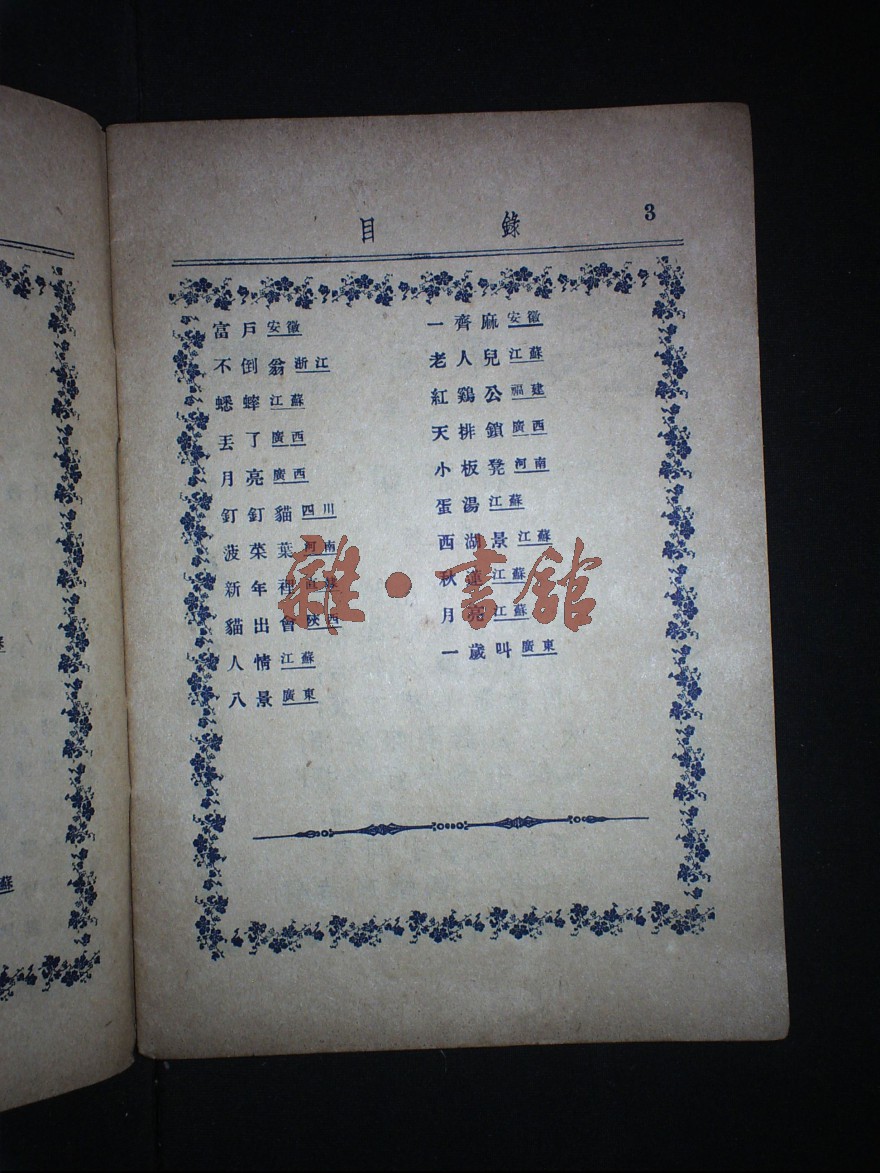 目錄 3
富戶 安徽
不倒翁 浙江
蟋蟀 江蘇
丟了 廣西
月亮 廣西
釘釘貓 四川
菠菜葉 河南
新年裡
貓出會 陜西
人情 江蘇
八景 廣東
一齊麻 安徽
老人兒 江蘇
紅鷄公 福建
天排鎖 廣西
小板凳 河南
蛋湯 江蘇
西湖景 江蘇
秋蓮 江蘇
月亮 江蘇
一歲叫 廣東
雜·書館
蘇